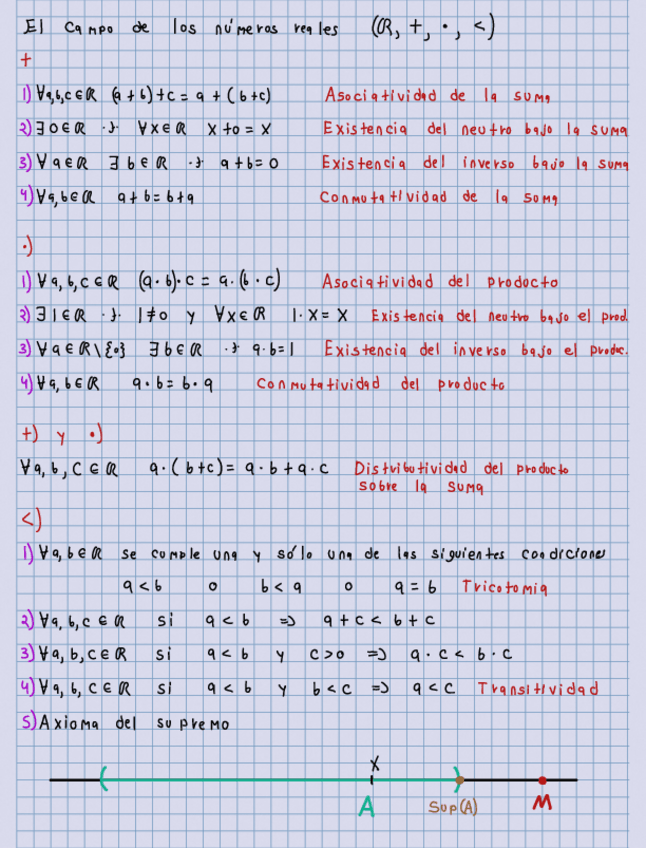 El Campo de los números reales (ℝ, +, ·, <)
+
1) ∀a,b,c∈ℝ (a + b)+c = a + (b+c) Asociatividad de la suma
2) ∃0∈ℝ ·∋· ∀x∈ℝ x+0 = x Existencia del neutro bajo la suma
3) ∀a∈ℝ ∃b∈ℝ ·∋· a+b=0 Existencia del inverso bajo la suma
4) ∀a,b∈ℝ a+b=b+a Conmutatividad de la suma
·)
1) ∀a,b,c∈ℝ (a·b)·c = a·(b·c) Asociatividad del producto
2) ∃1∈ℝ ·∋· 1≠0 y ∀x∈ℝ 1·x=x Existencia del neutro bajo el prod.
3) ∀a∈ℝ\{0} ∃b∈ℝ ·∋· a·b=1 Existencia del inverso bajo el produc.
4) ∀a,b∈ℝ a·b=b·a Conmutatividad del producto
+) y ·)
∀a,b,c∈ℝ a·(b+c)= a·b+a·c Distributividad del producto
sobre la suma
<)
1) ∀a,b∈ℝ se cumple una y sólo una de las siguientes condiciones
a<b o b<a o a=b Tricotomia
2) ∀a,b,c∈ℝ si a<b => a+c < b+c
3) ∀a,b,c∈ℝ si a<b y c>0 => a·c < b·c
4) ∀a,b,c∈ℝ si a<b y b<c => a<c Transitividad
5) Axioma del supremo
x
A Sup(A) M